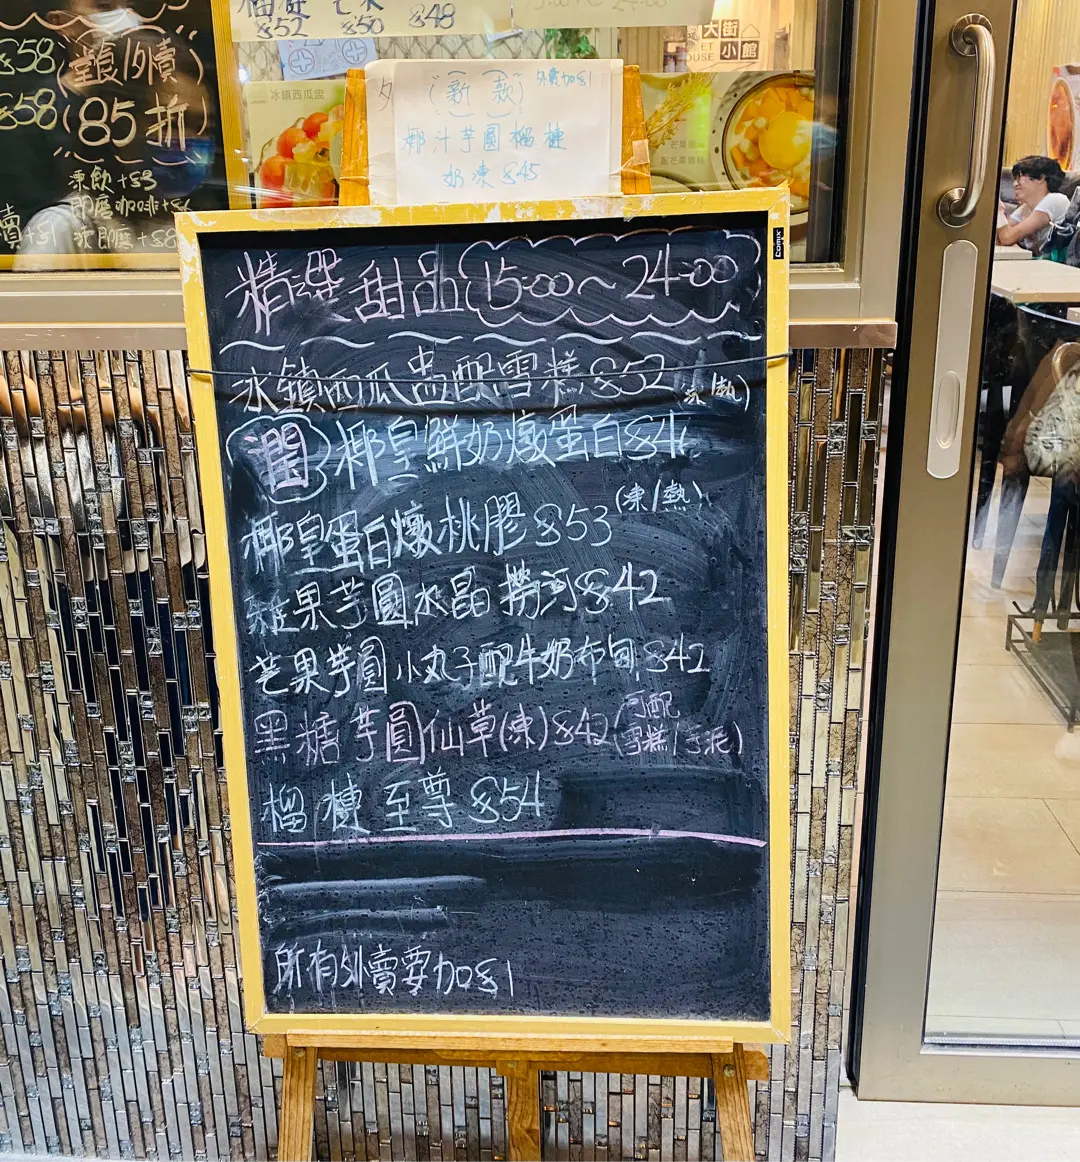 榴槤 芒果
$52 $50 $48
15:00 ~ 24:00
$58
$58
(堂食/外賣)
(85折)
凍飲+$3
即磨咖啡+$6
凍即磨+$8
大街
小館
冰鎮西瓜盅
(新款)
外賣加$1
椰汁芋圓榴槤
奶凍$45
comix
精選甜品 15:00~24:00
冰鎮西瓜盅配雪糕$52
(凍/熱)
潤 椰皇鮮奶燉蛋白$46
(凍/熱)
椰皇蛋白燉桃膠$53
雜果芋圓水晶撈河$42
芒果芋圓小丸子配牛奶布甸$42
黑糖芋圓仙草(凍)$42(可配
雪糕/芋泥)
榴槤至尊$54
所有外賣要加$1